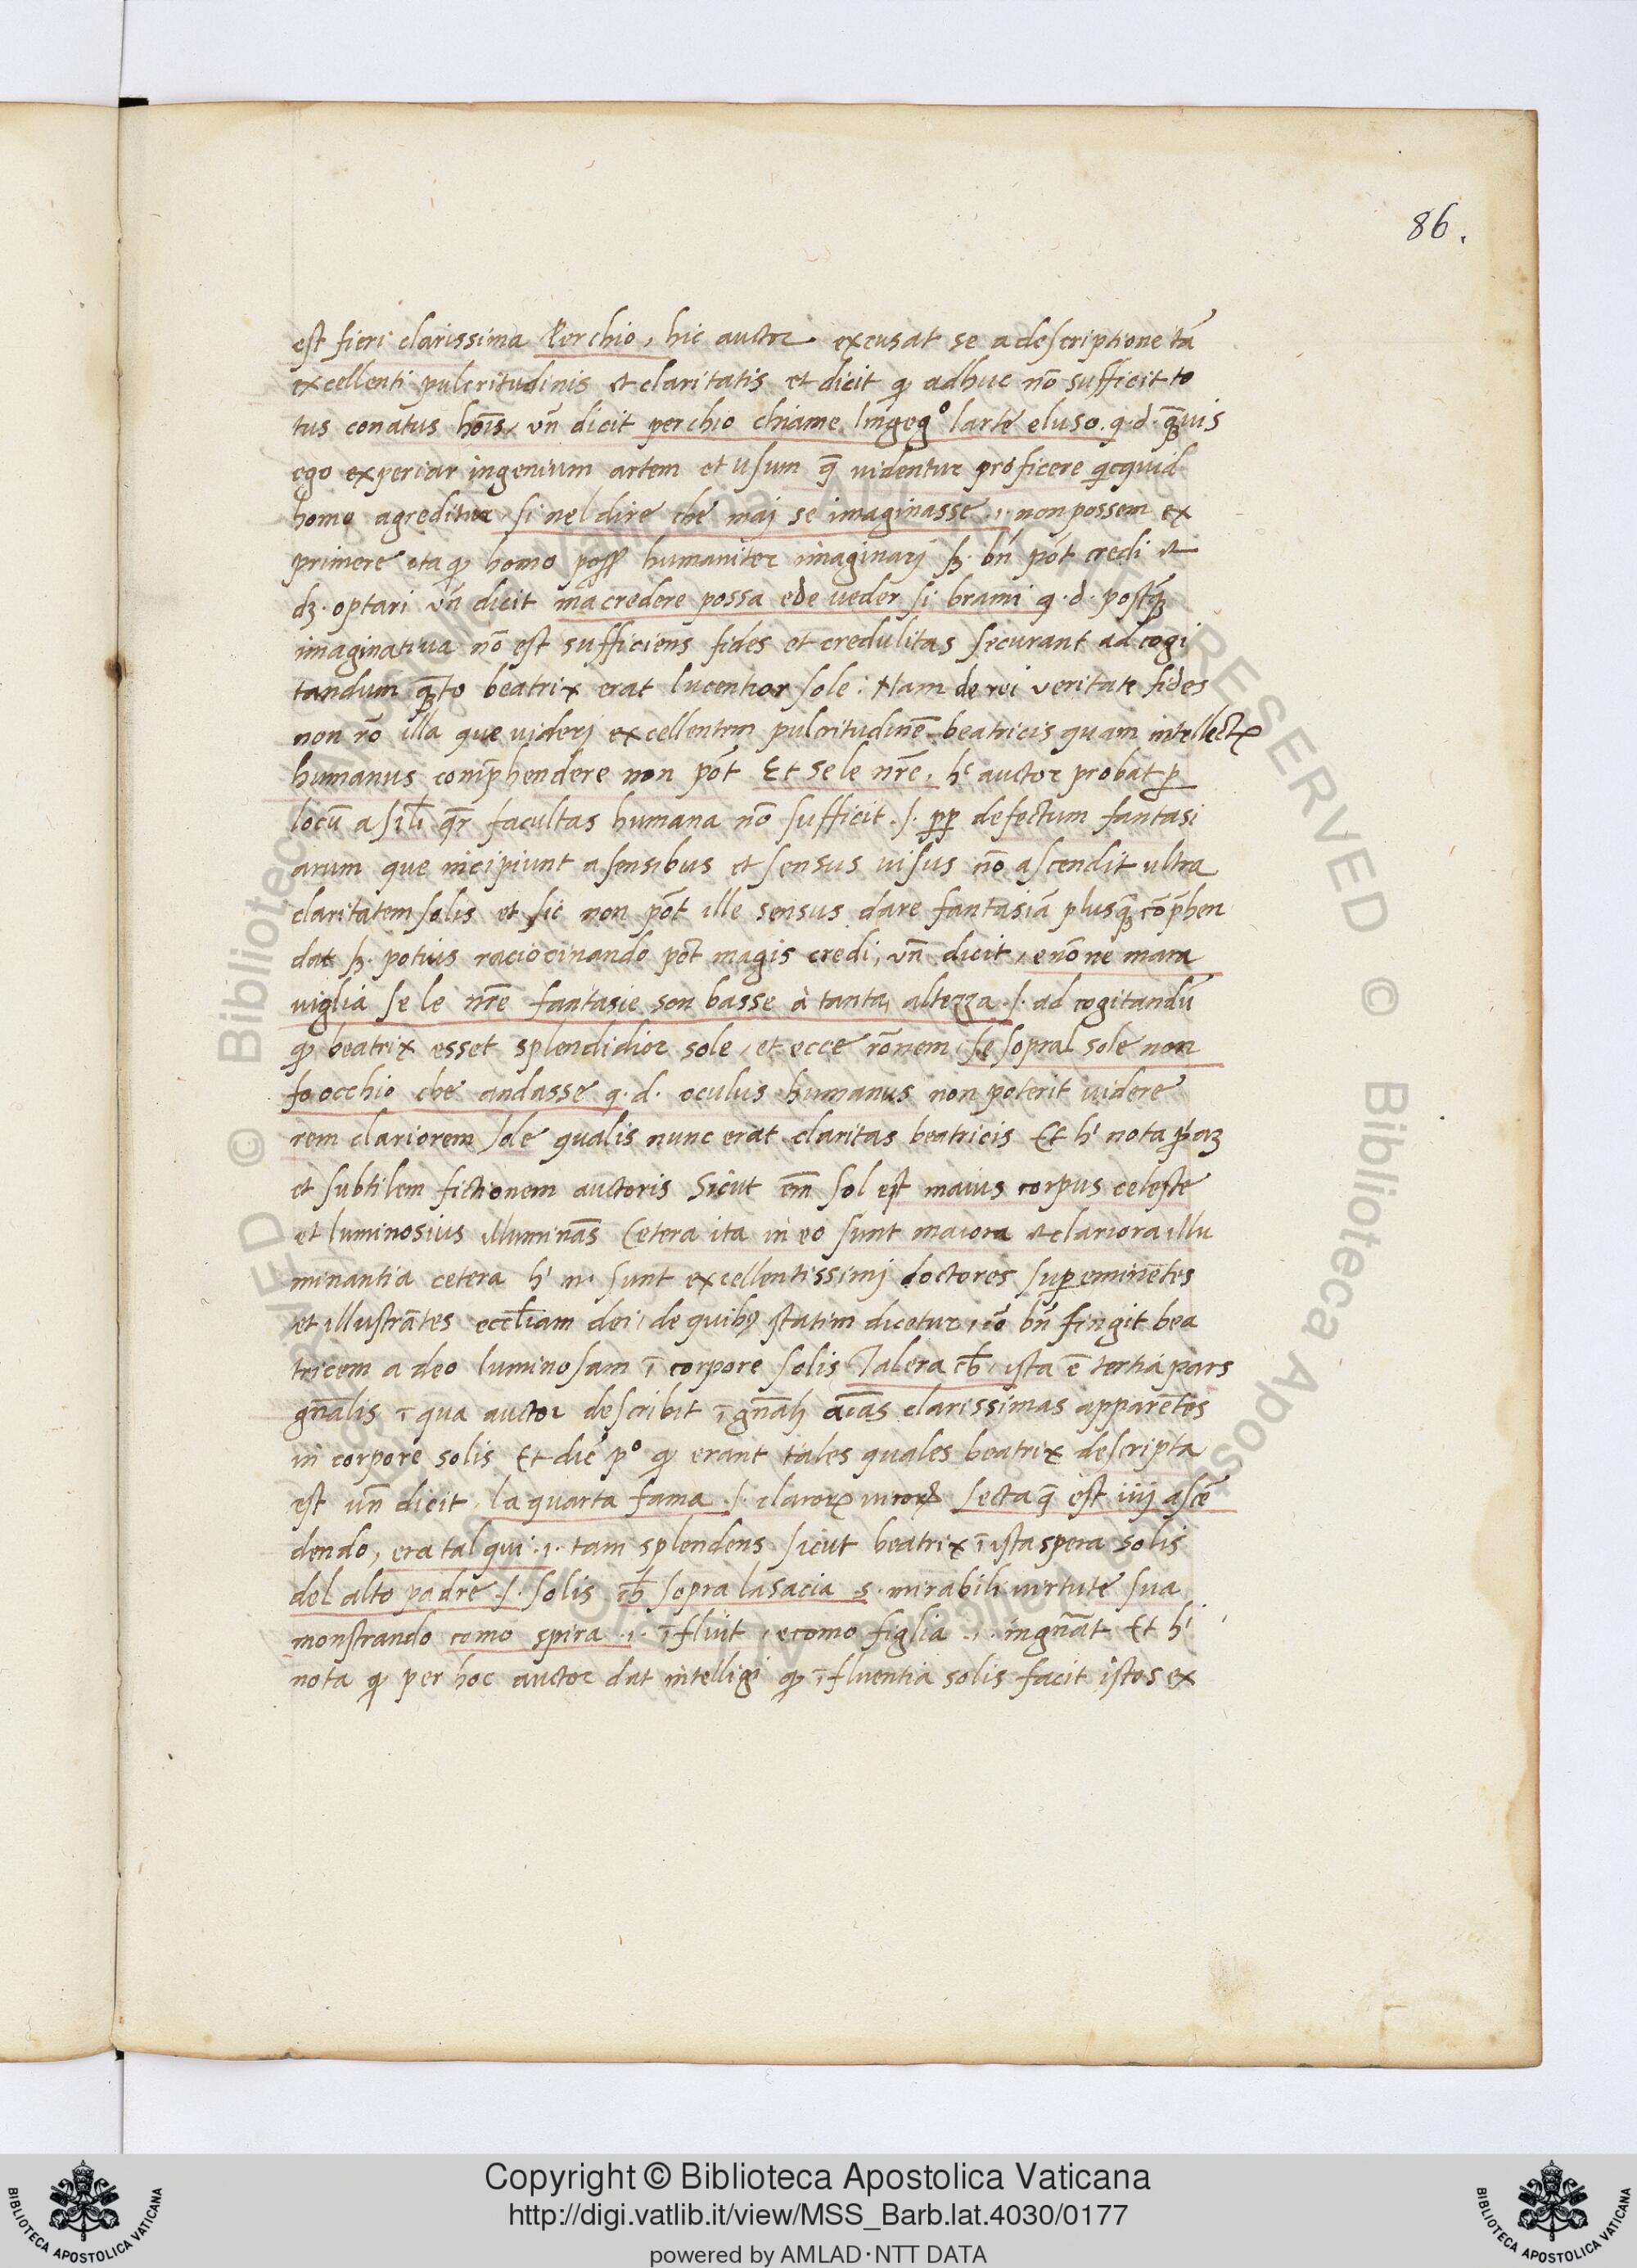 86.
est fieri clarissima Perchio, hic auctor excusat se a descriptione tā
excellenti pulcritudinis et claritatis et dicit ꝙ adhuc nō sufficit to
tus conatus hoīs, vn̄ dicit perchio chiame lingeg° larte eluso. q. d. qꝫ̄uis
ego experiar ingenium artem et usum q̄ videntur proficere qͥcquid
homo agreditur, si nel dire che maj se imaginasse .i. non possem ex
primere ita ꝙ homo poss̄ humaniter imaginarj sꝫ. bn̄ pōt credi et
dꝫ. optari vn̄ dicit ma credere possa ede ueder si brami q. d. postqꝫ̄
imaginatiua nō est sufficiens fides et credulitas securant ad cogi
tandum qꝫ̄to beatrix erat lucentior sole: Nam de rei veritate fides
non rō illa que viderj excellentem pulcritudinē beatricis quam intellectꝰ
humanus comp̄hendere non pōt Et se le nr̄e, hͨ auctor probat ꝑ
locū a sil̄i qr̄ facultas humana nō sufficit .s. ꝓꝑ defectum fantasi
arum que incipiunt a sensibus et sensus uisus nō ascendit ultra
claritatem solis et sic non pōt ille sensus dare fantasiā plusqꝫ̄ cōp̄hen
dat sꝫ. potius raciocinando pōt magis credi, vn̄ dicit, e nō ne mara
viglia se le nr̄e fantasie son basse à tanta altezza .s. ad cogitandū
ꝙ beatrix esset splendidior sole, et ecce rōnem, se sopral sole non
fo occhio che andasse q. d. oculus humanus non poterit videre
rem clariorem sole qualis nunc erat claritas beatricis Et hͥ nota
et subtilem fictionem auctoris Sicut em̄ sol est maius corpus celeste
et luminosius illuminās Cetera ita in eo sunt maiora et clariora illu
minantia cetera hͥ n. sunt excellentissimj doctores supereminētes
et illustrātes eccl̄iam dei, de quibꝰ statim dicetur, iō bn̄ fingit bea
tricem a deo luminosam ī corpore solis Talera cħ, ista ē tertia pars
gn̄alis ī qua auctor describit ī gn̄ali aīas clarissimas apparētes
in corpore solis Et dic̄ p° ꝙ erant tales quales beatrix descripta
est vn̄ dicit, la quarta fama .s. clarorꝝ virorꝝ secta q̄ est iiij ascē
dendo, era tal qui .i. tam splendens sicut beatrix ī ista spera solis
del alto padre .s. solis cħ sopra la sacia .s. mirabili virtute sua
monstrando como spira .i. īfluit, e como figlia .i. ingn̄at Et hͥ
nota ꝙ per hoc auctor dat intelligi ꝙ īfluentia solis facit istos ex
Copyright © Biblioteca Apostolica Vaticana
http://digi.vatlib.it/view/MSS_Barb.lat.4030/0177
powered by AMLAD·NTT DATA
BIBLIOTECA APOSTOLICA VATICANA
BIBLIOTECA APOSTOLICA VATICANA